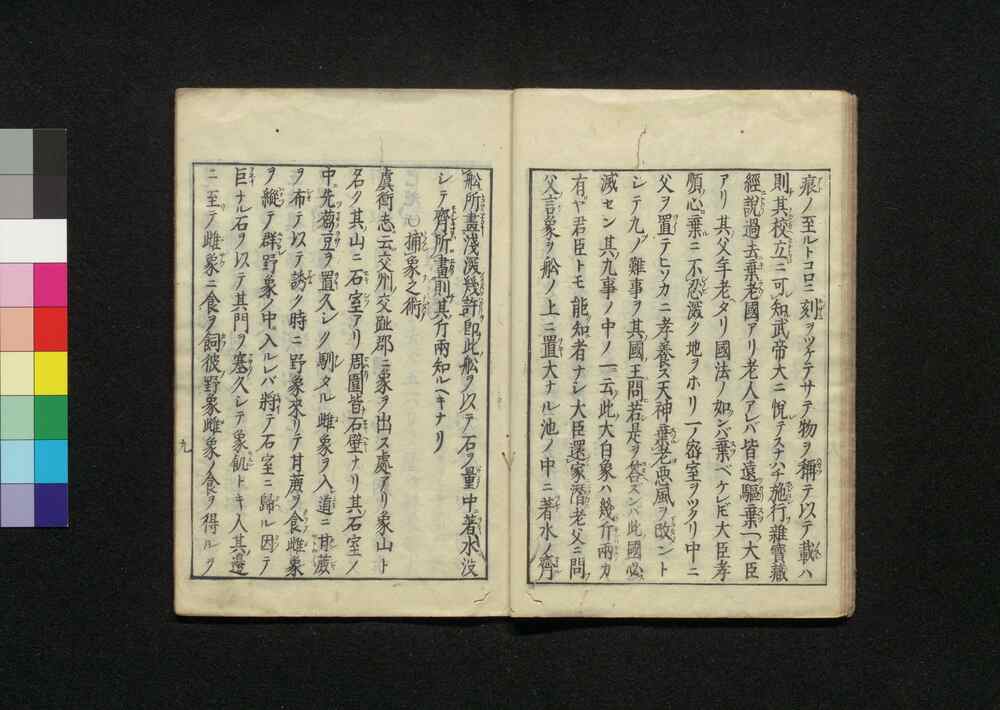 痕ノ至ルトコロニ刻ヲツケテサテ物ヲ稱テ以テ載ハ
則其校立ニ可知武帝大ニ悅テスナハチ施行雜寶藏
經說過去棄老國アリ老人アレバ皆遠驅棄一大臣
アリ其父年老タリ國法ノ如ンバ棄ベケレ𪜈大臣孝
順心棄ニ不忍深ク地ヲホリ一ノ密室ヲツクリ中ニ
父ヲ置テヒソカニ孝養ス天神棄老惡風ヲ改ント
シテ九ノ難事ヲ其國王問若是ヲ答ズンバ此國必
滅セン其九事ノ中ノ一云此大白象ハ幾斤兩カ
有ヤ君臣トモ能知者ナシ大臣還家潛老父ニ問
父言象ヲ舩ノ上ニ置大ナル池ノ中ニ著水ノ齊
舩所畫淺深幾許即此舩ヲ以テ石ヲ量中著水沒
シテ齊所畫則其斤兩知ルヘキナリ
○捕象之術
虞衡志云交州交趾郡ニ象ヲ出ス處アリ象山ト
名ク其山ニ石室アリ周圍皆石壁ナリ其石室ノ
中先蒭豆ヲ置久シク馴タル雌象ヲ入道ニ甘蔗
ヲ布テ以テ誘ク時ニ野象來リテ甘蔗ヲ食雌象
ヲ縱テ群野象ノ中入ルレバ將テ石室ニ歸ル因テ
巨ナル石ヲ以テ其門ヲ塞久シテ象飢トキ人其邊
ニ至テ雌象ニ食ヲ飼彼野象雌象ノ食ヲ得ルヲ
九